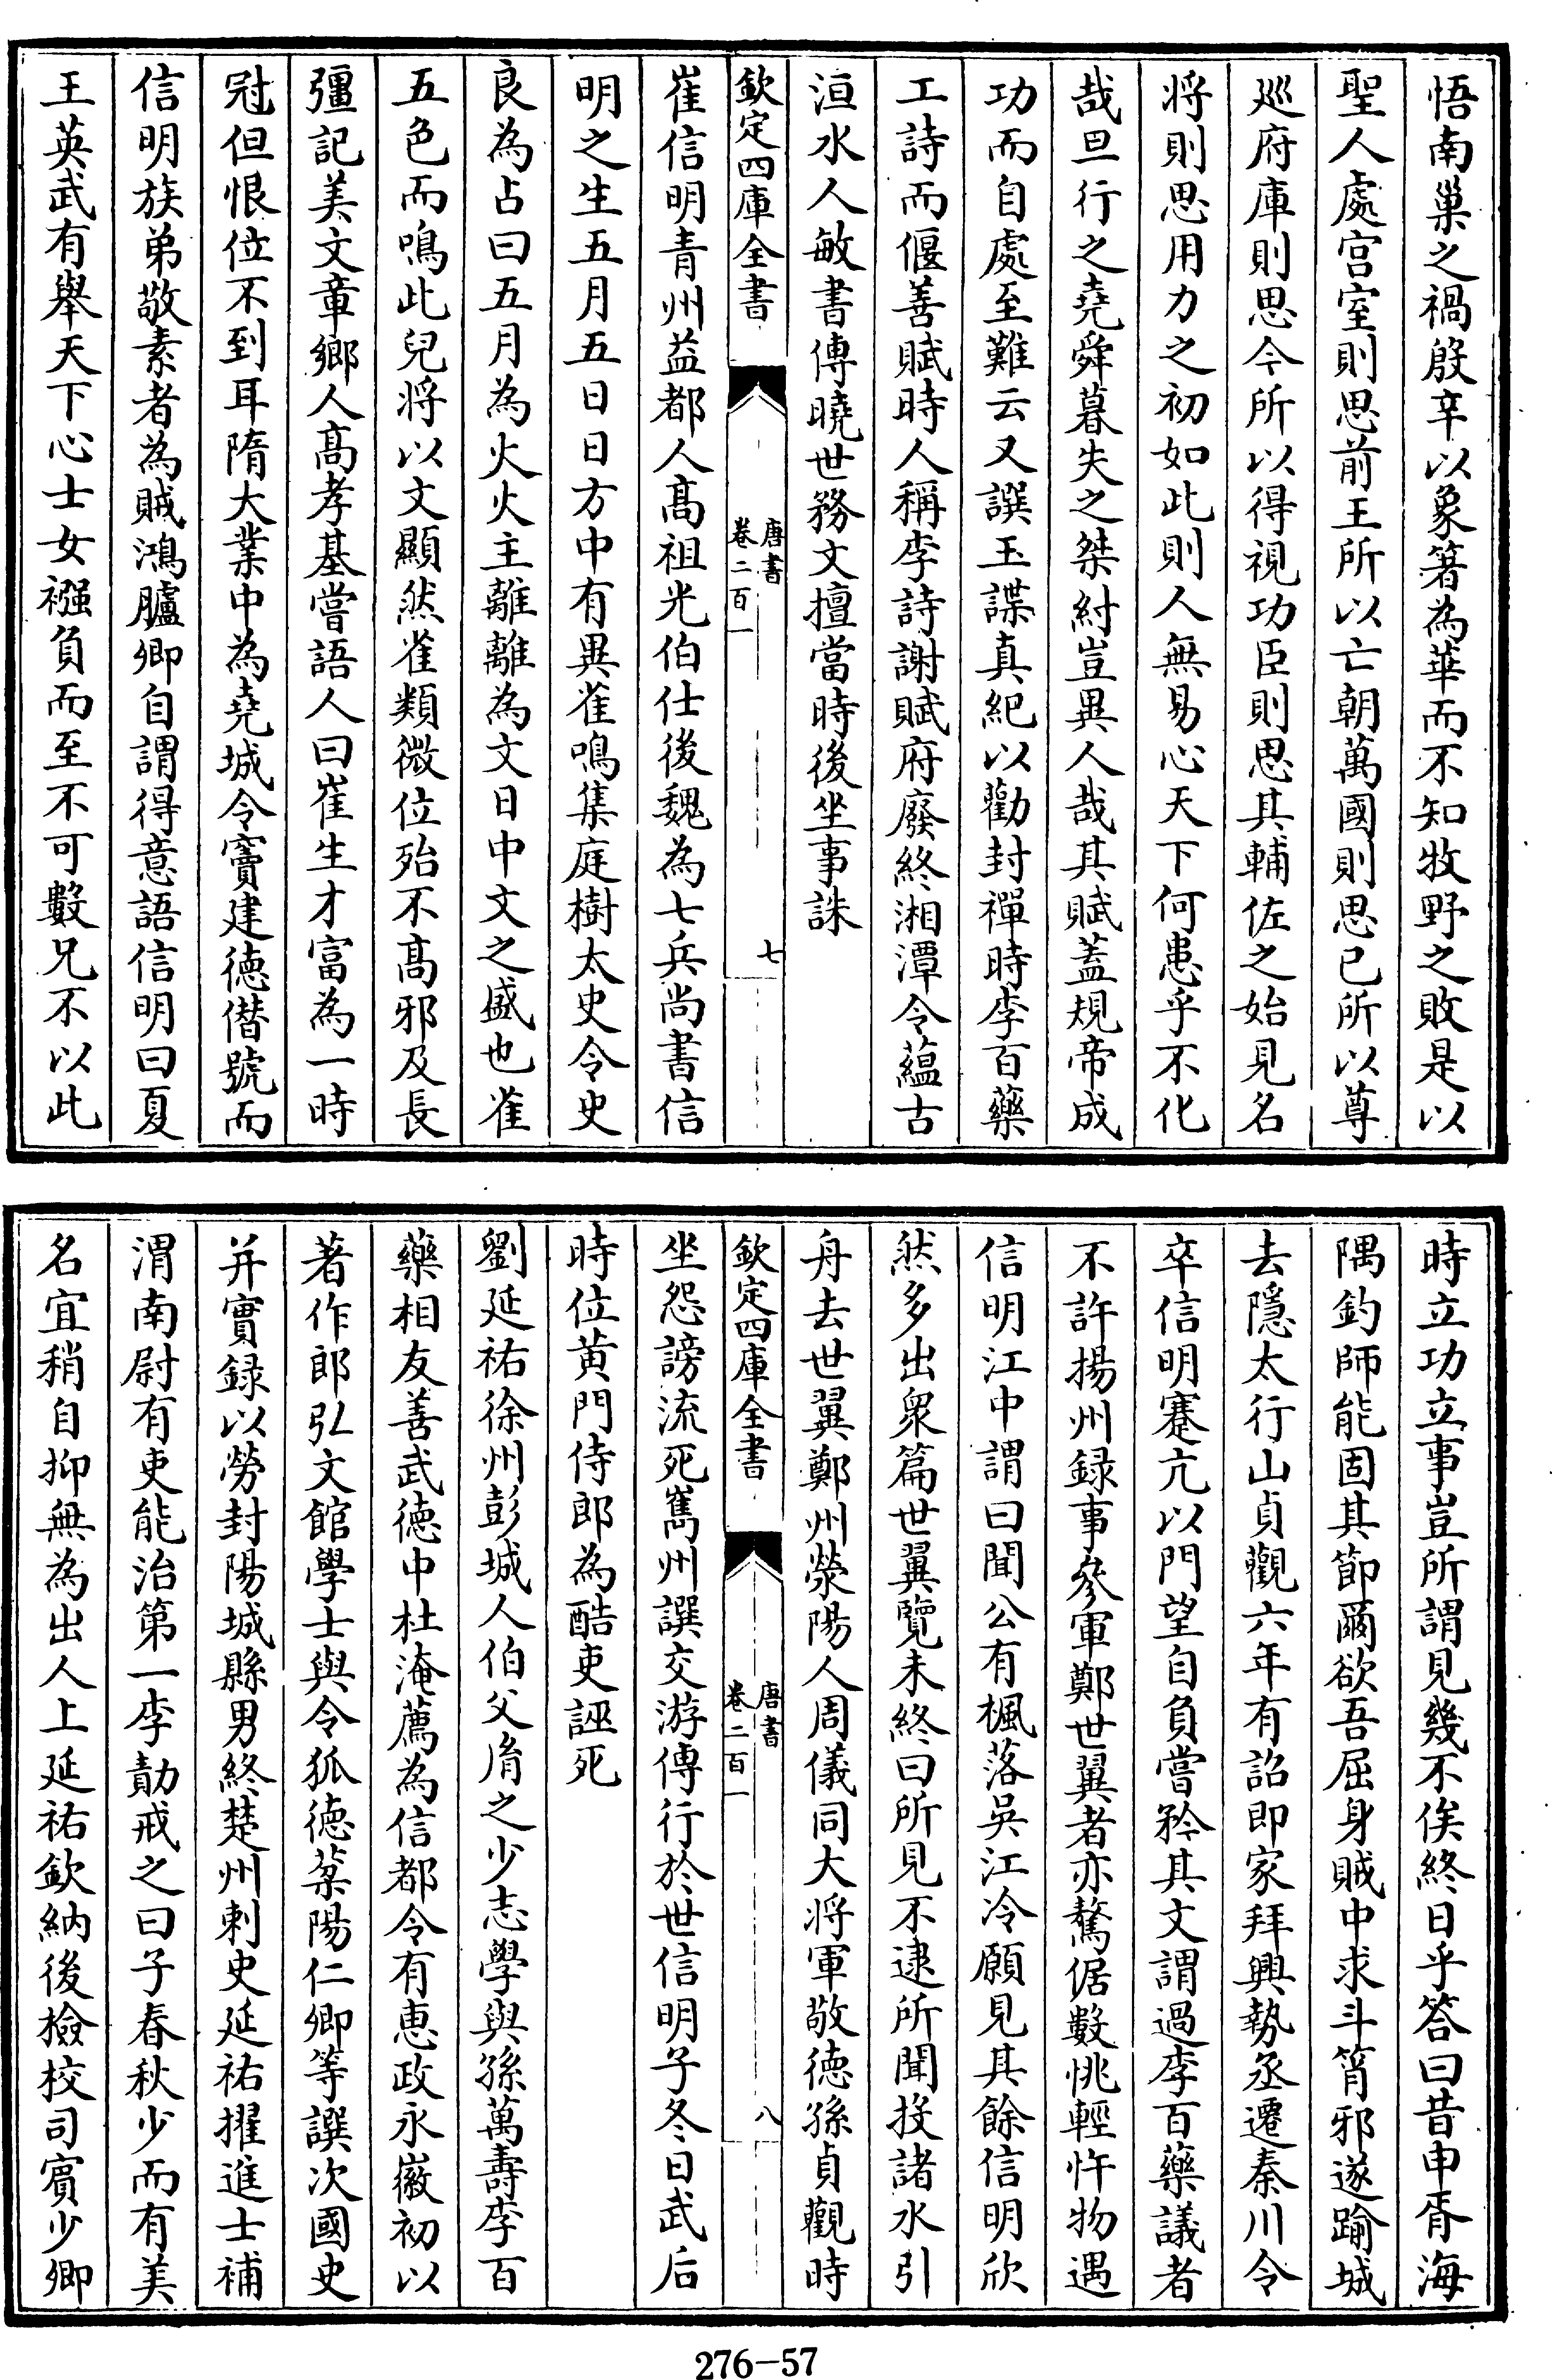 悟南巢之禍殷辛以象箸為華而不知牧野之敗是以
聖人處宫室則思前王所以亡朝萬國則思已所以尊
廵府庫則思今所以得視功臣則思其輔佐之始見名
將則思用力之初如此則人無易心天下何患乎不化
哉旦行之堯舜暮失之桀紂豈異人哉其賦蓋規帝成
功而自處至難云又譔玉諜真紀以勸封禪時李百藥
工詩而偃善賦時人稱李詩謝賦府廢終湘潭令蘊古
洹水人敏書傳曉世務文擅當時後坐事誅
欽定四庫全書
唐書
卷二百一
七
崔信明青州益都人髙祖光伯仕後魏為七兵尚書信
明之生五月五日日方中有異雀鳴集庭樹太史令史
良為占曰五月為火火主離離為文日中文之盛也雀
五色而鳴此兒將以文顯然雀類微位殆不髙邪及長
彊記美文章鄉人髙孝基嘗語人曰崔生才富為一時
冠但恨位不到耳隋大業中為堯城令竇建德僣號而
信明族弟敬素者為賊鴻臚卿自謂得意語信明曰夏
王英武有舉天下心士女襁負而至不可數兄不以此
時立功立事豈所謂見幾不俟終日乎答曰昔申胥海
隅釣師能固其節爾欲吾屈身賊中求斗筲邪遂踰城
去隱太行山貞觀六年有詔即家拜興勢丞遷秦川令
卒信明蹇亢以門望自負嘗矜其文謂過李百藥議者
不許揚州録事參軍鄭世翼者亦驁倨數恌輕忤物遇
信明江中謂曰聞公有楓落吳江冷願見其餘信明欣
然多出衆篇世翼覽未終曰所見不逮所聞投諸水引
舟去世翼鄭州滎陽人周儀同大將軍敬德孫貞觀時
欽定四庫全書
唐書
卷二百一
八
坐怨謗流死嶲州譔交游傳行於世信明子冬日武后
時位黄門侍郎為酷吏誣死
劉延祐徐州彭城人伯父胤之少志學與孫萬壽李百
藥相友善武德中杜淹薦為信都令有惠政永徽初以
著作郎弘文館學士與令狐德棻陽仁卿等譔次國史
并實録以勞封陽城縣男終楚州刺史延祐擢進士補
渭南尉有吏能治第一李勣戒之曰子春秋少而有美
名宜稍自抑無為出人上延祐欽納後檢校司賓少卿
276-57